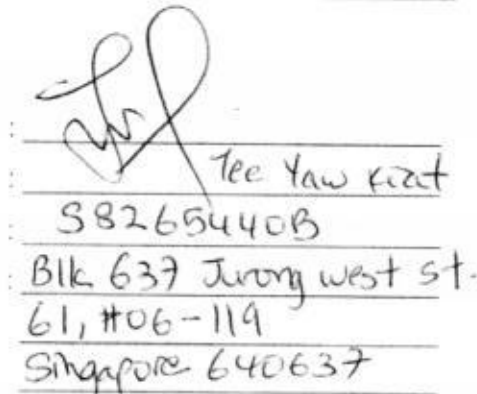 Tee Yaw Kiat
S8265440B
Blk 637 Jurong west st.
61, #06-119
Singapore 640637